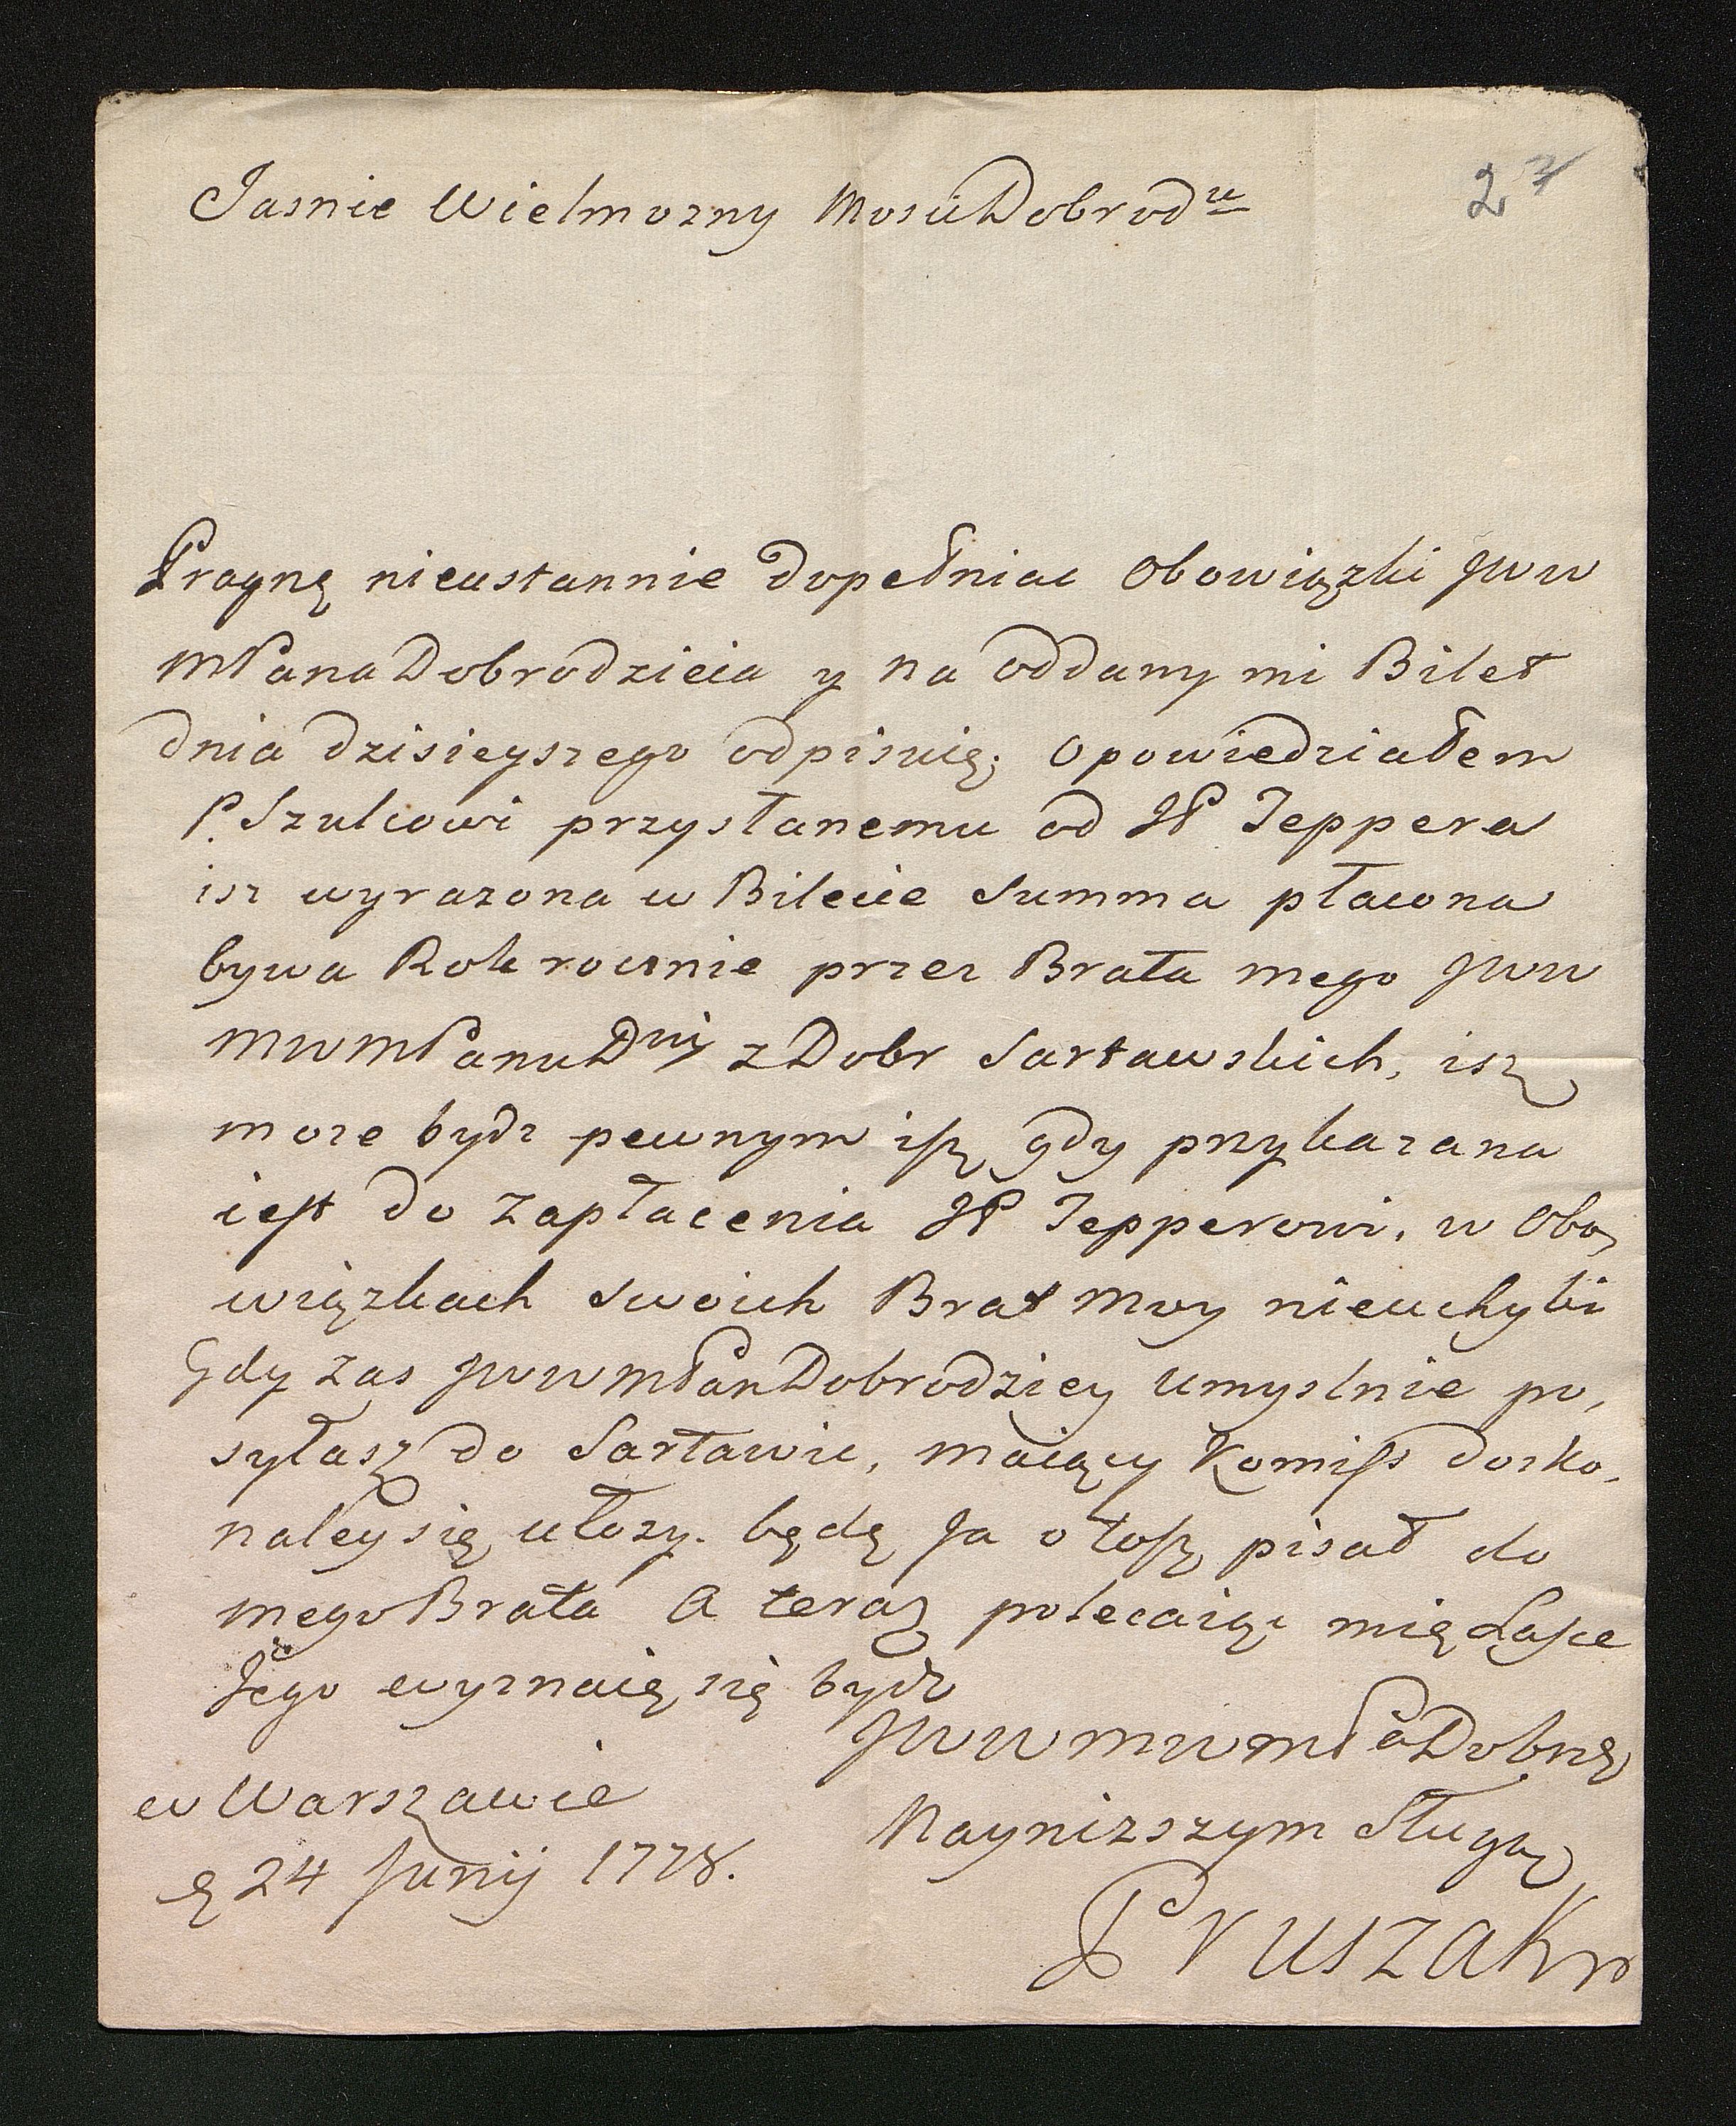 27
Jasnie Wielmozny MosciDobrodzu
Pragnę nieustannie dopełniac Obowiązki JWW
MPanaDobrodzieia y na oddany mi Bilet
dnia dzisieyszego odpisuię; Opowiedziałem
P. Szulcowi przysłanemu od JP Teppera
isz wyrazona w Bilecie Summa płacona
bywa Rok rocznie przez Brata mego JWW
MWMPanuDnij z Dobr Sartawskich, isz
moze bydz pewnym iſz gdy przykazana
ieſt do zapłacenia JP Tepperowi, w Obo,
wiązkach Swoich Brat moy nieuchybi
Gdy zas JWWMPanDobrodziey umyslnie po,
syłasz do Sartawic, maiący Komiſs dosko,
naley się ułozy. będę Ja o toſz pisał do
mego Brata A teraz polecaiąc mię Łaſce
Jego wyznaię się bydz
JWWMWMPaDobrze
w Warszawie
Nayniższym Sługą
24 Junij 1778.
Pruszak